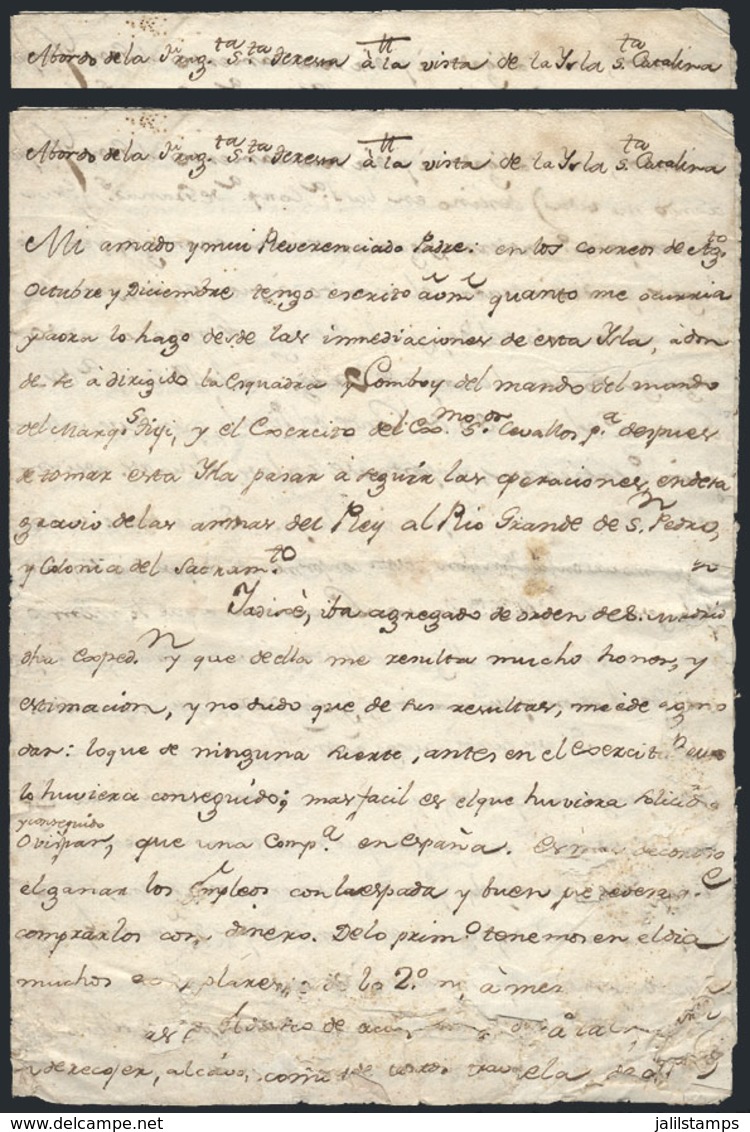 Abordo de la Frag.ta S.ta Teresa â la vista de la Ysla S.ta Catalina
Abordo de la Frag.ta S.ta Teresa â la vista de la Ysla S.ta Catalina
Mi amado y mui Reverenciado Padre: en los correos de Ag.to
Octubre y Diciembre tengo escrito à Vm quanto me ocurria
y aora lo hago desde las inmediaciones de esta Ysla, adon
de se à dirigido la esquadra y Comboy del mando del mando
del Marq.s , y el Exercito del Ex.mo S.or Cevallos p.a despues
de tomar esta Ysla pasar à seguir las operaciones, en desa
gravio de las armas del Rey al Rio Grande de S.n Pedro,
y Colonia del Sacram.to
Ya dixè, iba agregado de orden de S. M.
dha Exped.n y que de ella me resulta mucho honor, y
estimacion, y no dudo que de sus resultas, me è de
dar: lo que de ninguna suerte, antes en el Exercito
lo huviera conseguido; mas facil es el que huviera
y conseguido
que una Comp.a en España.
el ganar los Empleos con la espada y buen
comprarlos con dinero. De lo prim.o tenemos en el dia
muchos de lo 2.o
de
de recojer, al cavo, como de la
jalilstamps